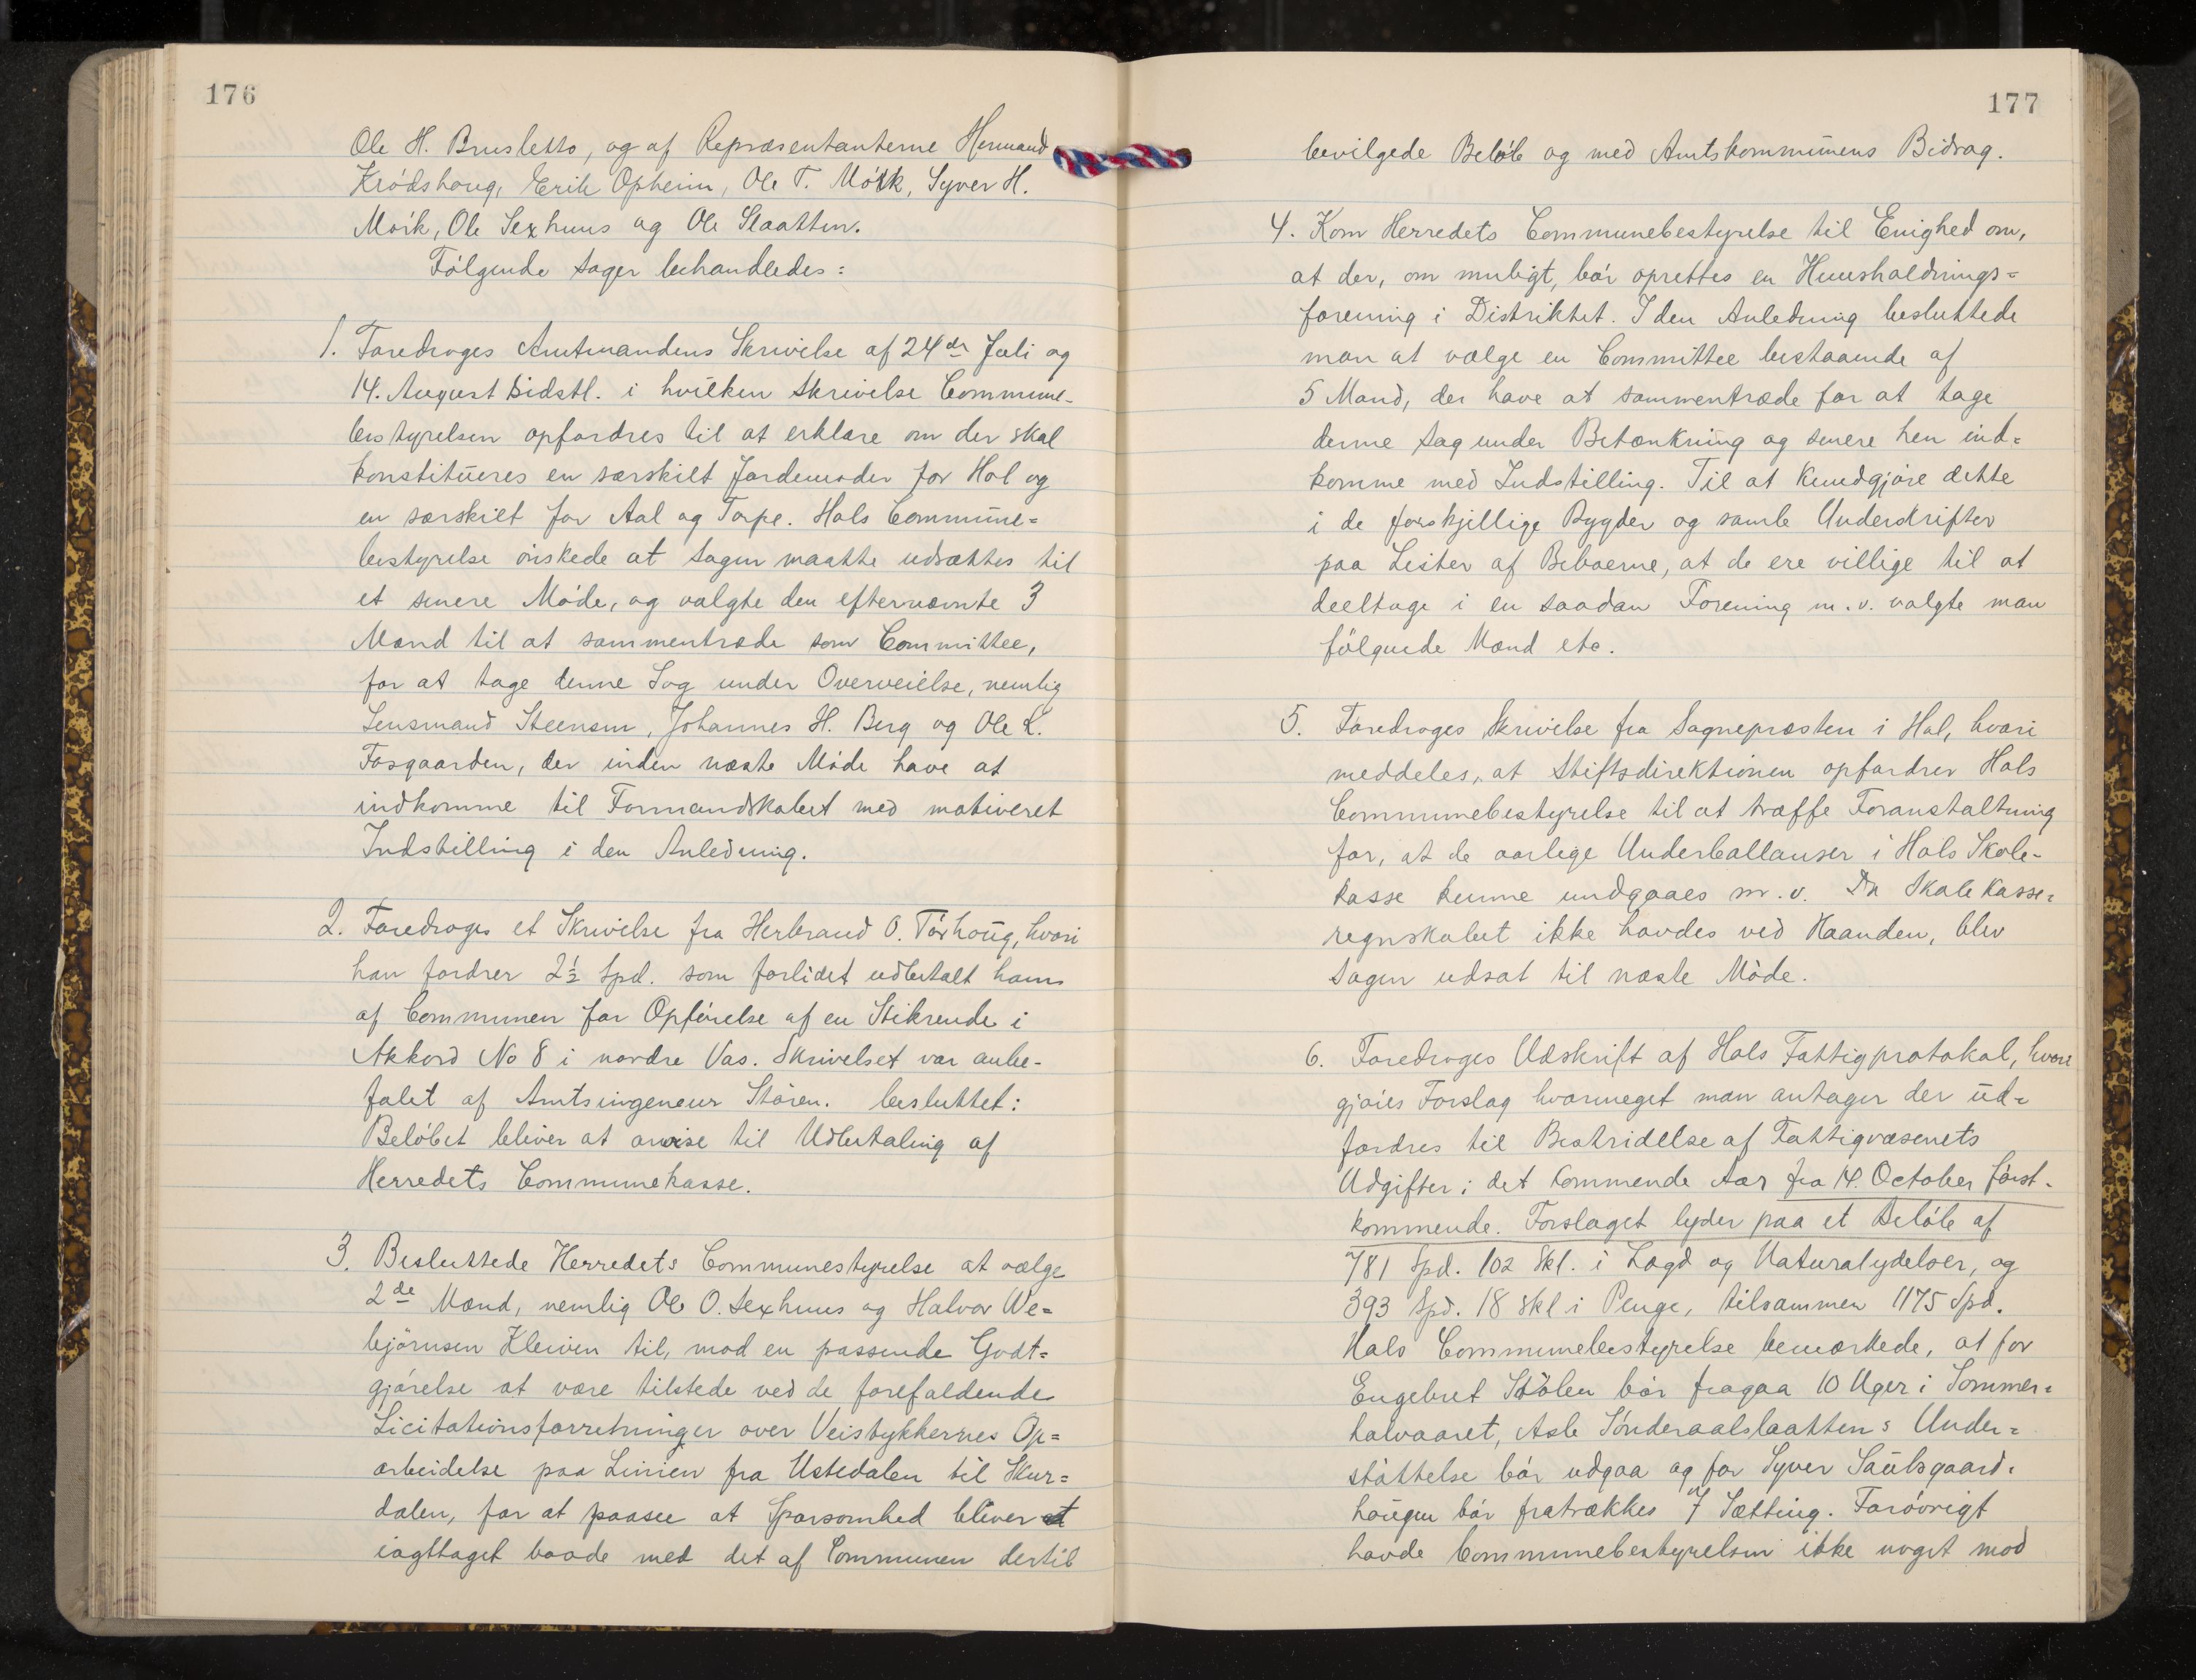 176
Ole H. Brusletto, og af Repræsentanterne Hermand
Krödshoug, Erik Opheim, Ole T. Mörk, Syver H.
Mörk, Ole Sexhuus og Ole Slaatten.
Fölgende Sager behandledes:
1. Foredroges Amtmandens Skrivelse af 24de Juli og
14. August sidstl. i hvilken Skrivelse Commune-
bestyrelsen opfordres til at erklære om der skal
konstitueres en særskilt Jordemoder for Hol og
en særskilt for Aal og Torpe. Hols Commune=
bestyrelse önskede at Sagen maatte udsættes til
et senere Möde, og valgte den efternævnte 3
Mænd til at sammentræde som Committee,
for at tage denne Sag under Overveielse, nemlig
Lensmand Steensen, Johannes H. Berg og Ole L.
Fosgaarden, der inden næste Möde have at
indkomme til Formandskabet med motiveret
Indstilling i den Anledning.
2. Foredroges et Skrivelse fra Herbrand O. Törhoug, hvori
han fordrer 2½ Spd. som forlidet udbetalt ham
af Communen for Opförelse af en Stikrende i
Akkord No 8 i nordre Vas. Skrivelset var anbe-
falet af Amtsingeneur Stören. besluttet:
Belöbet bliver at anvise til Udbetaling af
Herredets Communekasse.
3. Besluttede Herredets Communestyrelse at vælge
2de Mænd, nemlig Ole O. Sexhuus og Halvor We=
björnsen Kleiven til, mod en passende Godt=
gjörelse at være tilstede ved de forefaldende
Licitationsforretninger over Veistykkernes Op=
arbeidelse paa Linien fra Ustedalen til Skur=
dalen, for at paasee at Sparsomhed bliver
iagttaget baade med det af Communen dertil
177
bevilgede Belöb og med Amtskommunens Bidrag.
4. Kom Herredets Communebestyrelse til Enighed om,
at der, om muligt, bör oprettes en Huusholdnings=
forening i Distriktet. I den Anledning besluttede
man at vælge en Committee bestaaende af
5 Mand, der have at sammentræde for at tage
denne Sag under Betænkning og senere hen ind=
komme med Indstilling. Til at kundgjöre dette
i de forskjellige Bygder og samle Underskrifter
paa Lister af Beboerne, at de ere villige til at
deeltage i en saadan Forening m. v. valgte man
fölgende Mænd etc.
5. Foredroges Skrivelse fra Sognepræsten i Hol, hvori
meddeles, at Stiftsdirektionen opfordrer Hols
Communebestyrelse til at træffe Foranstaltning
for, at de aarlige Underballanser i Hols Skole-
kasse kunne undgaaes m. v. Da Skolekasse=
regnskabet ikke havdes ved Haanden, blev
Sagen udsat til næste Möde.
6. Foredroges Udskrift af Hols Fattigprotokol, hvori
gjöres Forslag hvormeget man antager der ud=
fordres til Bestridelse af Fattigvæsenets
Udgifter i det kommende Aar fra 14. October först-
kommende. Forslaget lyder paa et Belöb af
781 Spd. 102 Skl. i Lægd og Naturalydelser, og
393 Spd. 18 Skl i Penge, tilsammen 1175 Spd.
Hols Communebestyrelse bemærkede, at for
Engebret Stölen bör fragaa 10 Uger i Sommer=
halvaaret, Asle Sönderaalslaatten's Under=
stöttelse bör udgaa og for Syver Saubsgaard=
haugen bör fratrækkes 7 Sætting. Forövrigt
havde Communebestyrelsen ikke noget mod